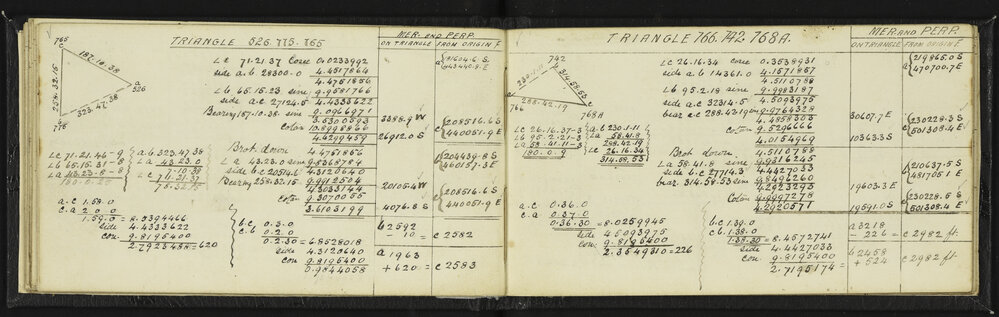 TRIANGLE 526. 775. 765
MER. AND PERP.
ON TRIANGLE FROM ORIGIN F
765
c
187.10.38
a
526
254.32.15
323.47.38
b
775
L c 71.21.37 Cosec 0.0233992
side a.b 28300.0 4.4517864
4.4751856
L b 65.15.23 sine 9.9581766
side a.c 27124.5 4.4333622
Bearing 187.10.38 sine 9.0966971
3.5300593 3388.9 W
Cotan 10.8998866
4.4299459 26912.0 S
{208516.6 S
c {440051.9 E
L c 71.21.46-9
L b 65.15.31-8
L a 43.23.8-8
180.0.25
a.b 323.47.38
L a 43.23.0
7.10.38
L c 71.21.37
Brot down 4.4751856
L a 43.23.0 sine 9.8368784
side b.c 20514.6 4.3120640
4.3033144 20105.4 W
Cotan 9.3070055
3.6103199 4076.8 S
{204439.8 S
{460157.3 E
{208516.6 S
c {440051.9 E
a.c 1.59.0
c.a 2.0.0
1.59.0 = 8.5394466
side 4.4333622
con. 9.8195400
2.7923488 = 620
b.c 0.5.0
c.b 0.2.0
0.2.30 = 6.8528018
side 4.3120640
con 9.8195400
0.9844058
b 2592
- 10 = c 2582
a 1963
+ 620 = c 2583
TRIANGLE 766. 742. 768A.
MER AND PERP.
ON TRIANGLE FROM ORIGIN F
742
b
230.1.11
314.58.53
a
766
288.42.19
c
768A
L c 26.16.34 cosec 0.3538931
side a.b 14361.0 4.1571857
4.5110788
L b 95.2.18 sine 9.9983187
side a.c 32314.5 4.5093975
bear a.c 288.43.19 sine 9.9764328
4.4858303 30607.7 E
Cotan 9.5296666
4.0154969 10363.3 S
{219865.0 S
a {470700.7 E
{230228.3 S
c {501308.4 E
L c 26.16.37-3
L b 95.2.21-3
L a 58.41.11-3
180.0.9
a.b 230.1.11
L a 58.41.8
288.42.19
L c 26.16.34
314.58.53
Brot down. 4.5110788
L a 58.41.8 sine 9.9316245
side b.c 27714.3 4.4427033
bear. 314.58.53 sine 9.8496260
4.2923293 19603.3 E
Cotan 9.9997278
4.2920571 19591.0 S
{210637.5 S
{481705.1 E
{230228.5 S
c {501308.4 E
a.c 0.36.0
c.a 0.37.0
0.36.30 = 8.0259945
side 4.5093975
con 9.8195400
2.3549310 = 226
b.c 1.39.0
c.b. 1.38.0
1.38.30 = 8.4572741
side 4.4427033
con 9.8195400
2.7195174 =
a 3218
- 226 = c 2982 ft.
b 2458
+ 524 = c 2982 ft